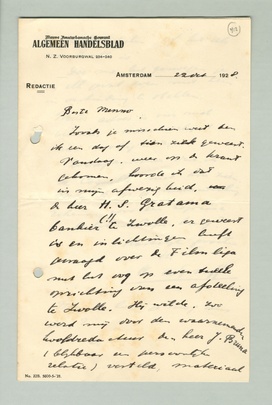 Nieuwe Amsterdamsche Courant
ALGEMEEN HANDELSBLAD
N. Z. VOORBURGWAL 234-240
AMSTERDAM 22 Oct 1928.
REDACTIE
Beste Menno,
Zooals je misschien weet ben
ik een dag of tien ziek geweest.
Vandaag weer op de krant
gekomen, hoorde ik dat
in mijn afwezigheid,
de heer H. S. Gratama
(!) bankier te Zwolle, er geweest
is en inlichtingen heeft
gevraagd over de Filmliga
met het oog op eventueele
oprichting van een afdeeling
te Zwolle. Hij wilde, zoo
werd mij door den waarnemenden
hoofdredacteur den heer J. Bruna
(blijkbaar een persoonlijke
relatie) verteld, materiaal